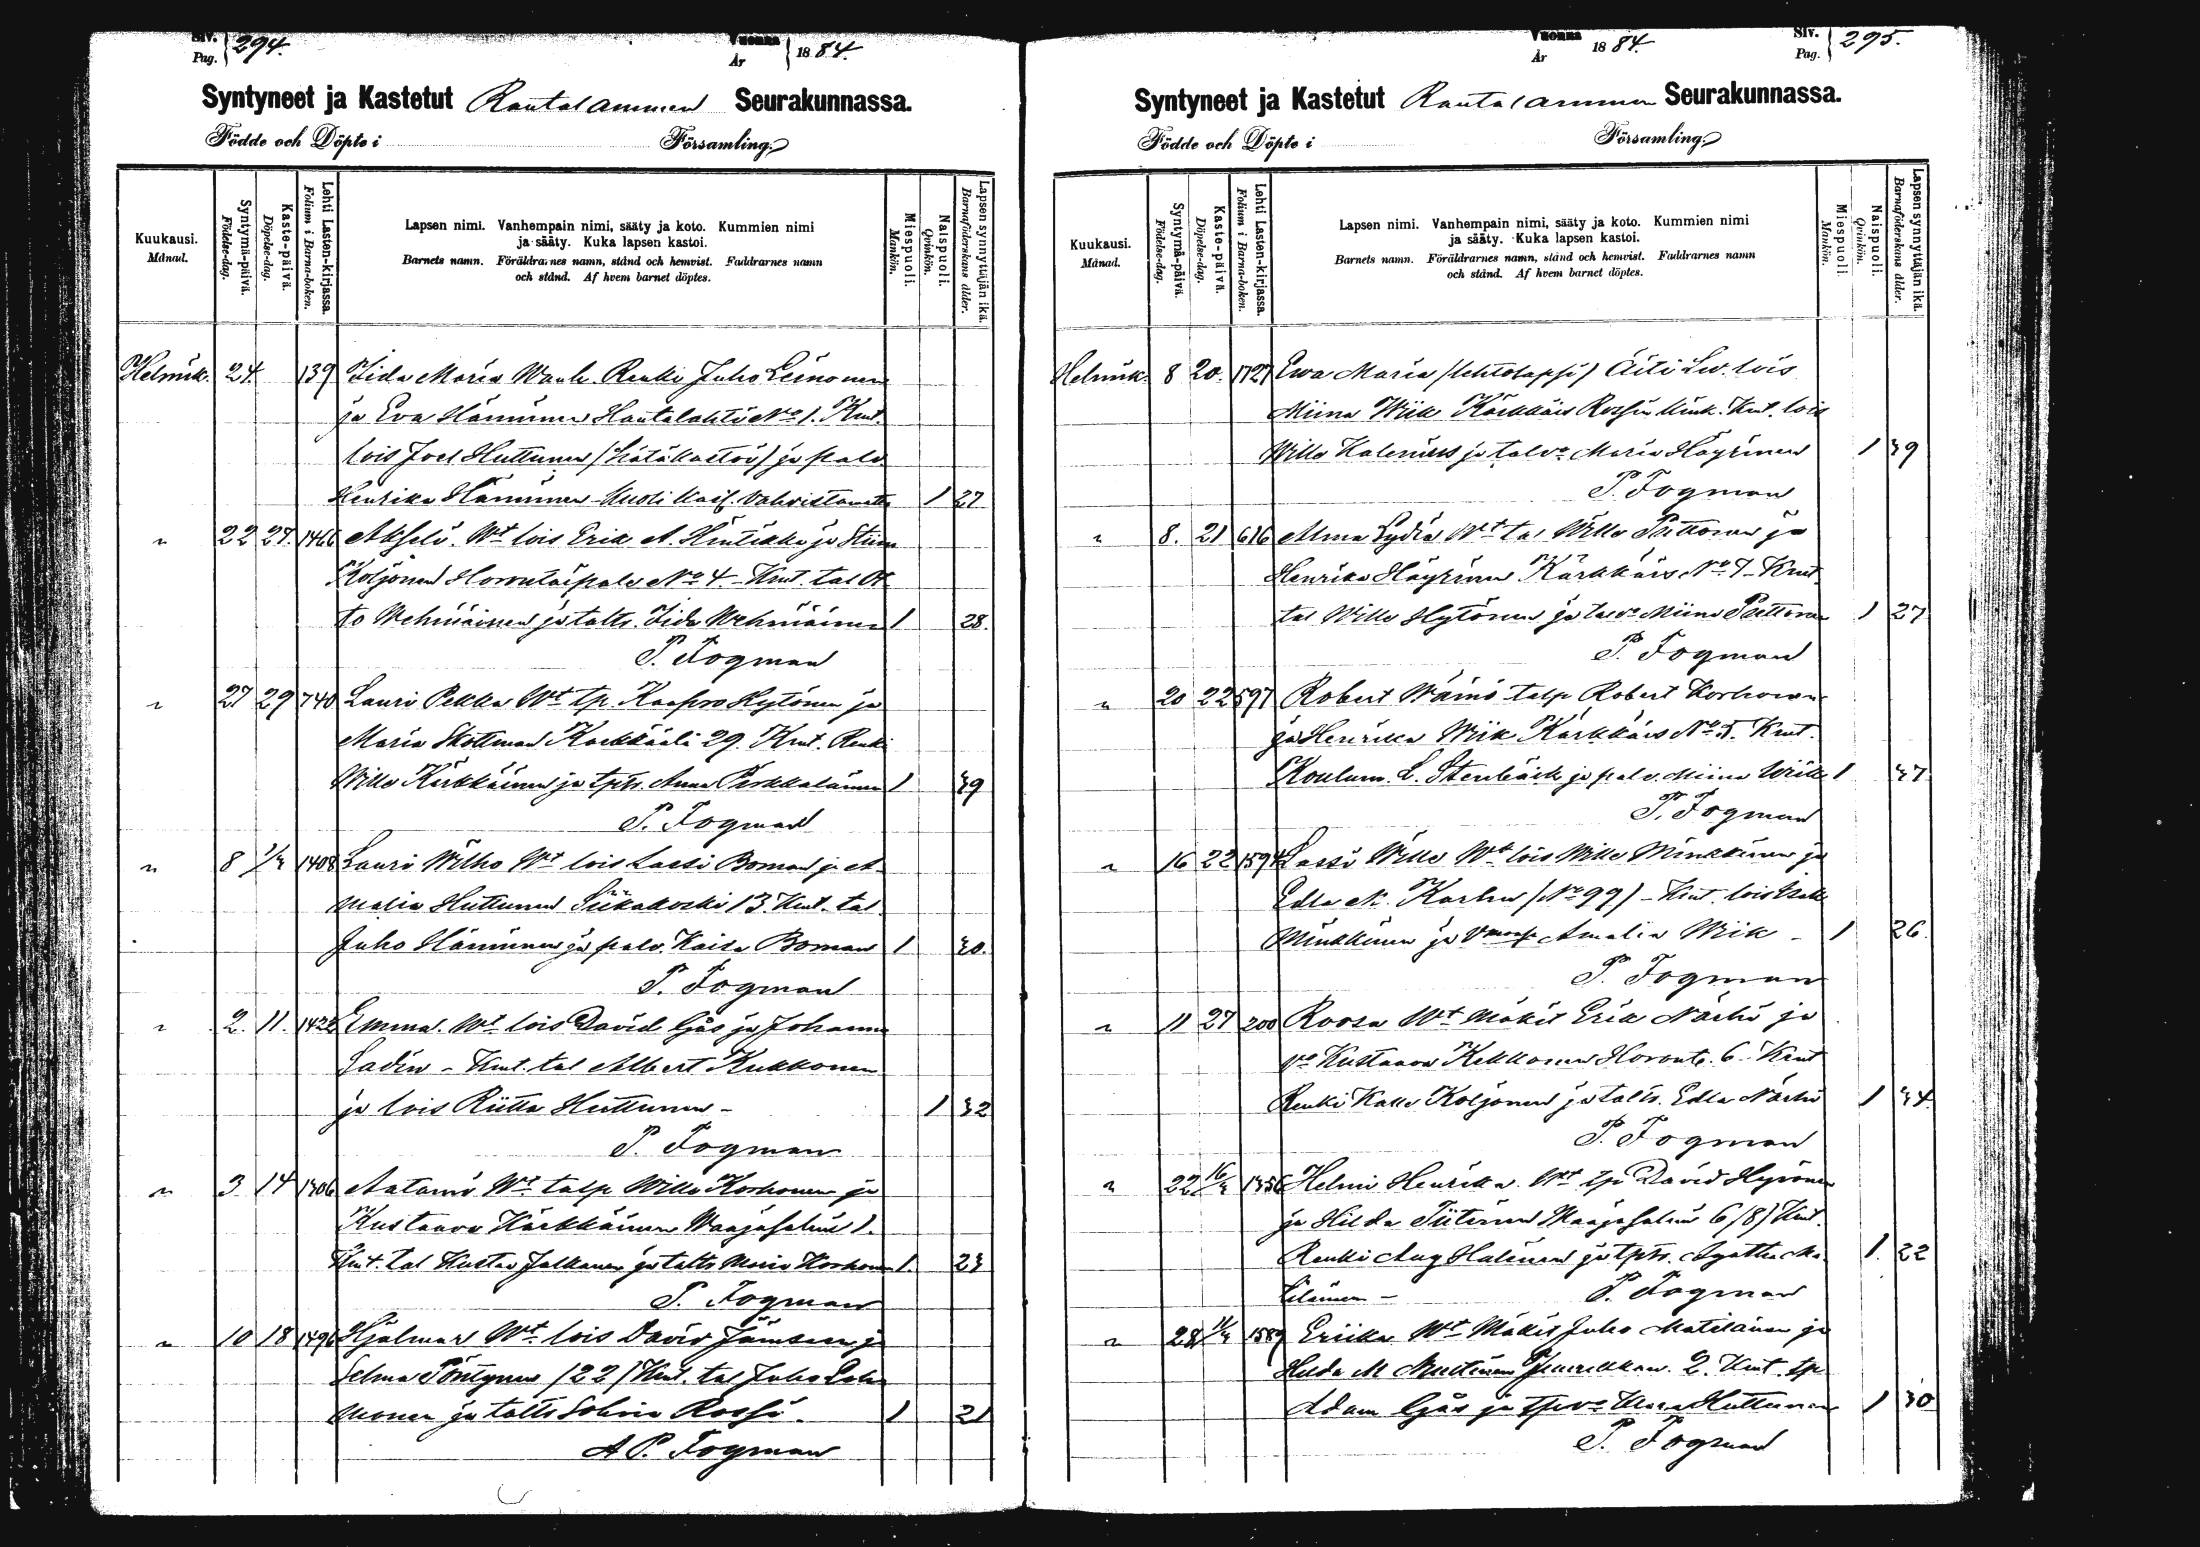 Siv. Pag. 294.
Vuonna År 1884.
Syntyneet ja Kastetut Rautalammen Seurakunnassa.
Födde och Döpte i Församling.
Kuukausi. Månad.
Syntymä-päivä. Födelse-dag.
Kaste-päivä. Döpelse-dag.
Lehti Lasten-kirjassa. Folium i Barna-boken.
Lapsen nimi. Vanhempain nimi, sääty ja koto. Kummien nimi
ja sääty. Kuka lapsen kastoi.
Barnets namn. Föräldrarnes namn, stånd och hemvist. Faddrarnes namn
och stånd. Af hvem barnet döptes.
Miespuoli. Mankön.
Naispuoli. Qvinkön.
Lapsen synnyttäjän ikä. Barnaföderskans ålder.
Helmik. 24. 139 Iida Maria Vanh. Renki Juho Leinonen
ja Eva Hänninen Hautalahti No 1. Kmt.
lois Joel Huttunen (hätäkastoi) ja palv.
Henrika Hänninen 1 27
" 22 27. 1466 Akseli. Wt lois Erik A. Hintikka ja Stiina
Koljonen Horontaipale No 4. Kmt. tal Ot
to Vehviäinen ja talts. Iida Vehviäinen 1 28.
P. Fogman
" 27 29 740 Lauri Pekka Wt tp. Kaapro Hytönen ja
Maria Skottman Kärkkäälä 29. Kmt. Renki
Wille Kärkkäinen ja tpts. Anna Perkkalainen 1 39
P. Fogman
" 8 1/3 1408 Lauri Wilho Wt lois Lassi Boman ja A
malia Huttunen Siikakoski 13. Kmt. tal
Juho Hänninen ja palv. Kaisa Boman 1 30.
P. Fogman
" 2. 11. 1422 Emma. Wt lois David Gås ja Johanna
Sadin - Kmt. tal Albert Kukkonen
ja lois Riitta Huttunen - 1 32
P. Fogman
" 3 14 1306 Aatami Wt talp Wille Korhonen ja
Kustaava Kärkkäinen Waajasalmi 1.
Kmt. tal Kustav Jalkanen ja talts Maria Korhonen 1. 23
P. Fogman
" 10 18 1496 Hjalmar Wt lois David Jämbäck ja
Selma Pöntynen (22) Kmt. tal Juho
monen ja talts Sohvia Rossi. 1 21
A P. Fogman
Vuonna År 1884.
Siv. Pag. 295.
Syntyneet ja Kastetut Rautalammen Seurakunnassa.
Födde och Döpte i Församling.
Kuukausi. Månad.
Syntymä-päivä. Födelse-dag.
Kaste-päivä. Döpelse-dag.
Lehti Lasten-kirjassa. Folium i Barna-boken.
Lapsen nimi. Vanhempain nimi, sääty ja koto. Kummien nimi
ja sääty. Kuka lapsen kastoi.
Barnets namn. Föräldrarnes namn, stånd och hemvist. Faddrarnes namn
och stånd. Af hvem barnet döptes.
Miespuoli. Mankön.
Naispuoli. Qvinkön.
Lapsen synnyttäjän ikä. Barnaföderskans ålder.
Helmik. 8 20. 1727 Ewa Maria (lehtolapsi) Äiti Lw. lois
Miina Wiik Kärkkäis Rossin Kmt. lois
Wille Kalenius ja talvo Maria Häyrinen 1 39
P. Fogman
" 8. 21 616 Alma Lydia Wt tal Wille Puttonen ja
Henrika Häyrinen Kärkkäis No 7 - Kmt
tal Wille Hytönen ja talvo Miina Puttonen 1 27
P. Fogman
" 20 22 597 Robert Wäinö talp Robert Korhonen
ja Henrika Wiik Kärkkäis No 5. Kmt.
Koulum. L. Stenbäck ja palv. Miina Wiik 1 37
P. Fogman
" 16 22 1594 Lassi Wille Wt lois Wille Minkkinen ja
Edla M. Karhu (No 99) - Kmt. lois Kalle
Minkkinen ja Amalia Wiik - 1 26.
P. Fogman
" 11 27 200 Roosa Wt Mäkit Erik Närhi ja
vo Kustaava Kekkonen Horonta. 6 - Kmt
Renki Kalle Koljonen ja talts. Edla Närhi 1 34.
P. Fogman
" 22 16/3 1356 Helmi Henrika. Wt tp David Hyvönen
ja Hilda Tiitinen Waajasalmi 6 (8) Kmt.
Renki Aug Halinen ja tpts. Agatha Ma
tilainen - P. Fogman 1. 22
" 28 11/3 1589 Eriika Wt Mäkit Juho Matilainen ja
Hilda M 2. Kmt. tp
Adam Gås ja tpvo Huttunen 1 30
P. Fogman